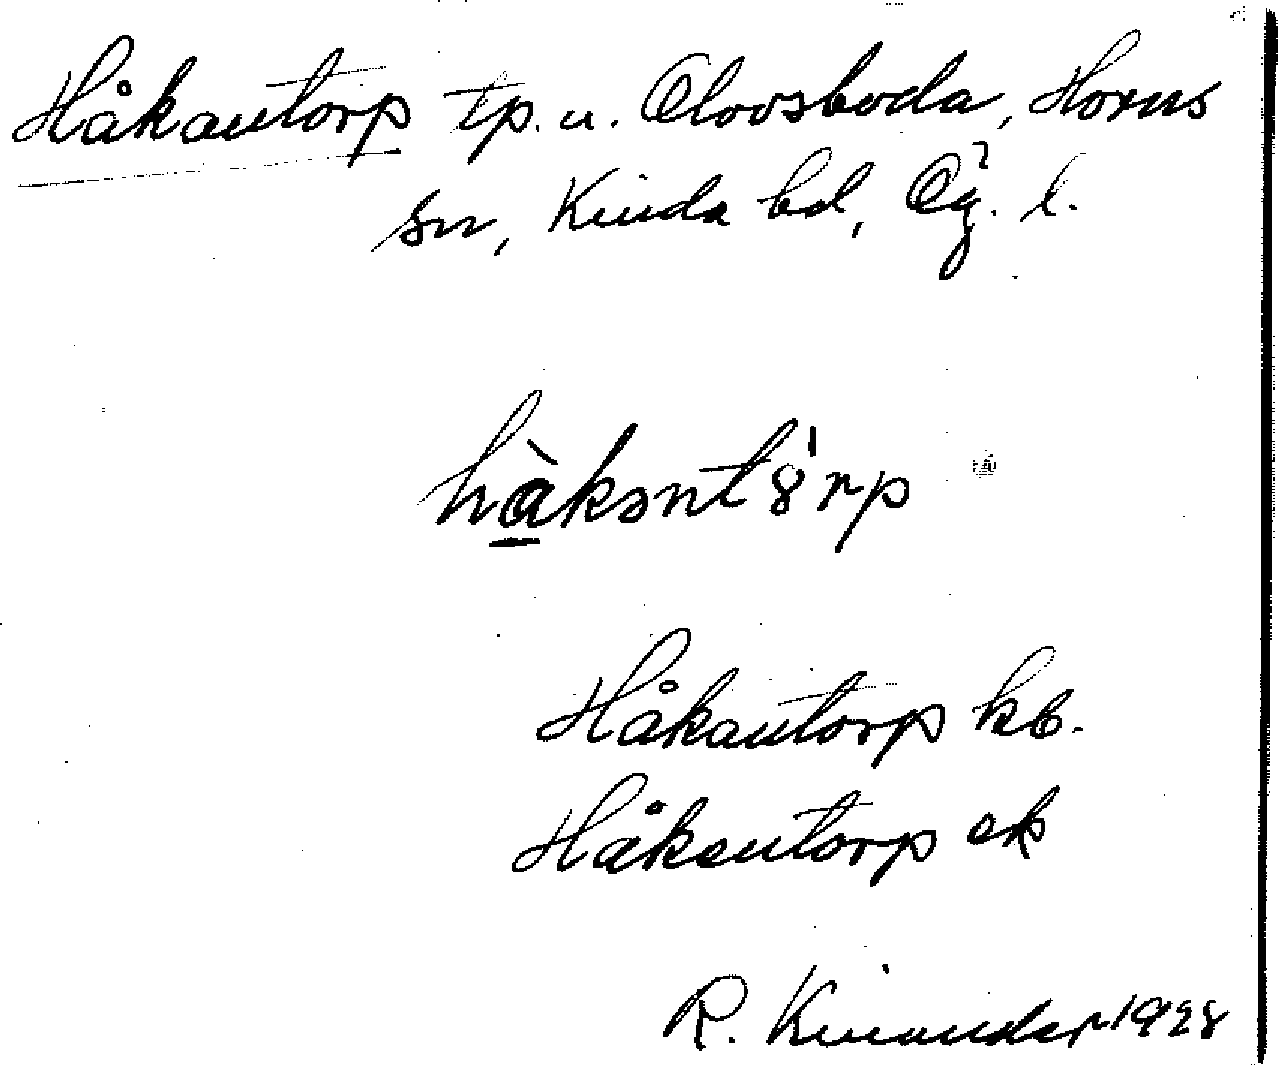 Håkantorp tp. u. Olovsboda, Horns
sn, Kinda hd, Ög. l.
hàkənt8'rp
Håkantorp kb.
Håkantorp ek
R. Kinander 1928